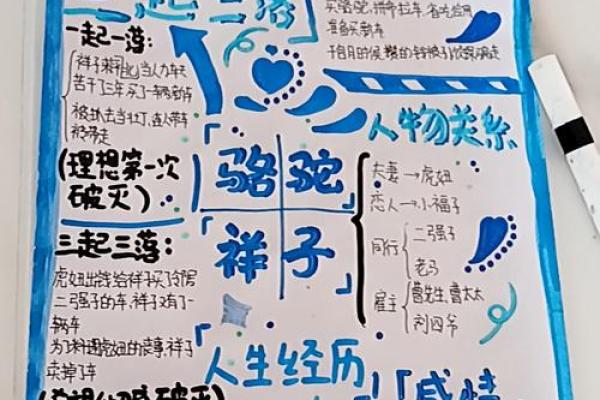 二起二落
买骆驼,拼命拉车,省吃俭用
准备买新车
干包月时候,攒的钱被孙侦探骗走
一起一落:
祥子来到北平当人力车夫
苦干了三年,买了一辆新车
被抓去当壮丁,连人带车
被带走
(理想第一次
破灭)
骆驼
祥子
人物关系
夫妻→虎妞
恋人→小福子
同行
二强子
老马
雇主
曹先生,曹太太
刘四爷
三起三落:
虎妞出钱给祥子买了邻居
二强子的车,祥子又有了一
辆车
为了料理虎妞的丧事,祥子
卖掉了车
人生经历
感情